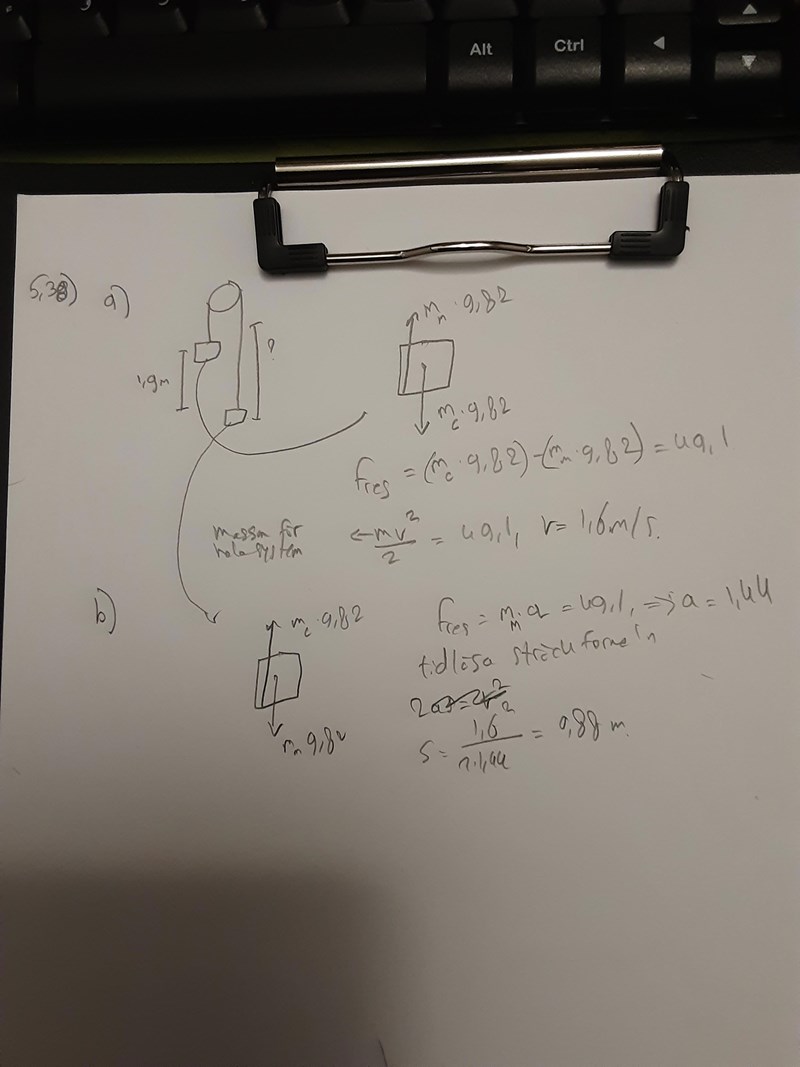 Alt Ctrl
5,38) a)
1,9m
?
m_m · 9,82
m_c · 9,82
F_res = (m_c · 9,82) - (m_m · 9,82) = 49,1
massan för
hela system
← mv²/2 = 49,1, v = 1,6 m/s.
b)
m_c · 9,82
m 9,82
F_res = m_M · a = 49,1, => a = 1,44
tidlösa sträckformeln
S = 1,6²/2·1,44 = 0,88 m.